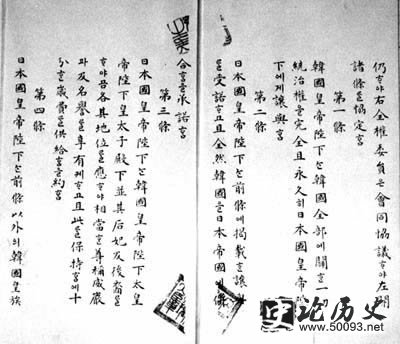 仍ᄒᆞ야右全權委員은會同協議ᄒᆞ야左開
諸條를協定홈
第一條
韓國皇帝陛下는韓國全部에關ᄒᆞᆫ一切
統治權을完全且永久히日本國皇帝陛
下에게讓與홈
第二條
日本國皇帝陛下는前條에揭載ᄒᆞᆫ讓與
를受諾ᄒᆞ고且全然韓國을日本帝國에倂
合홈을承諾홈
第三條
日本國皇帝陛下는韓國皇帝陛下太皇
帝陛下皇太子殿下並其后妃及後裔로
ᄒᆞ야곰各其地位를應ᄒᆞ야相當ᄒᆞᆫ尊稱威嚴
과及名譽를享有케ᄒᆞ고且此를保持홈에十
分ᄒᆞᆫ歲費를供給홈을約홈
第四條
日本國皇帝陛下는前條以外의韓國皇族
论历史
www.50093.net